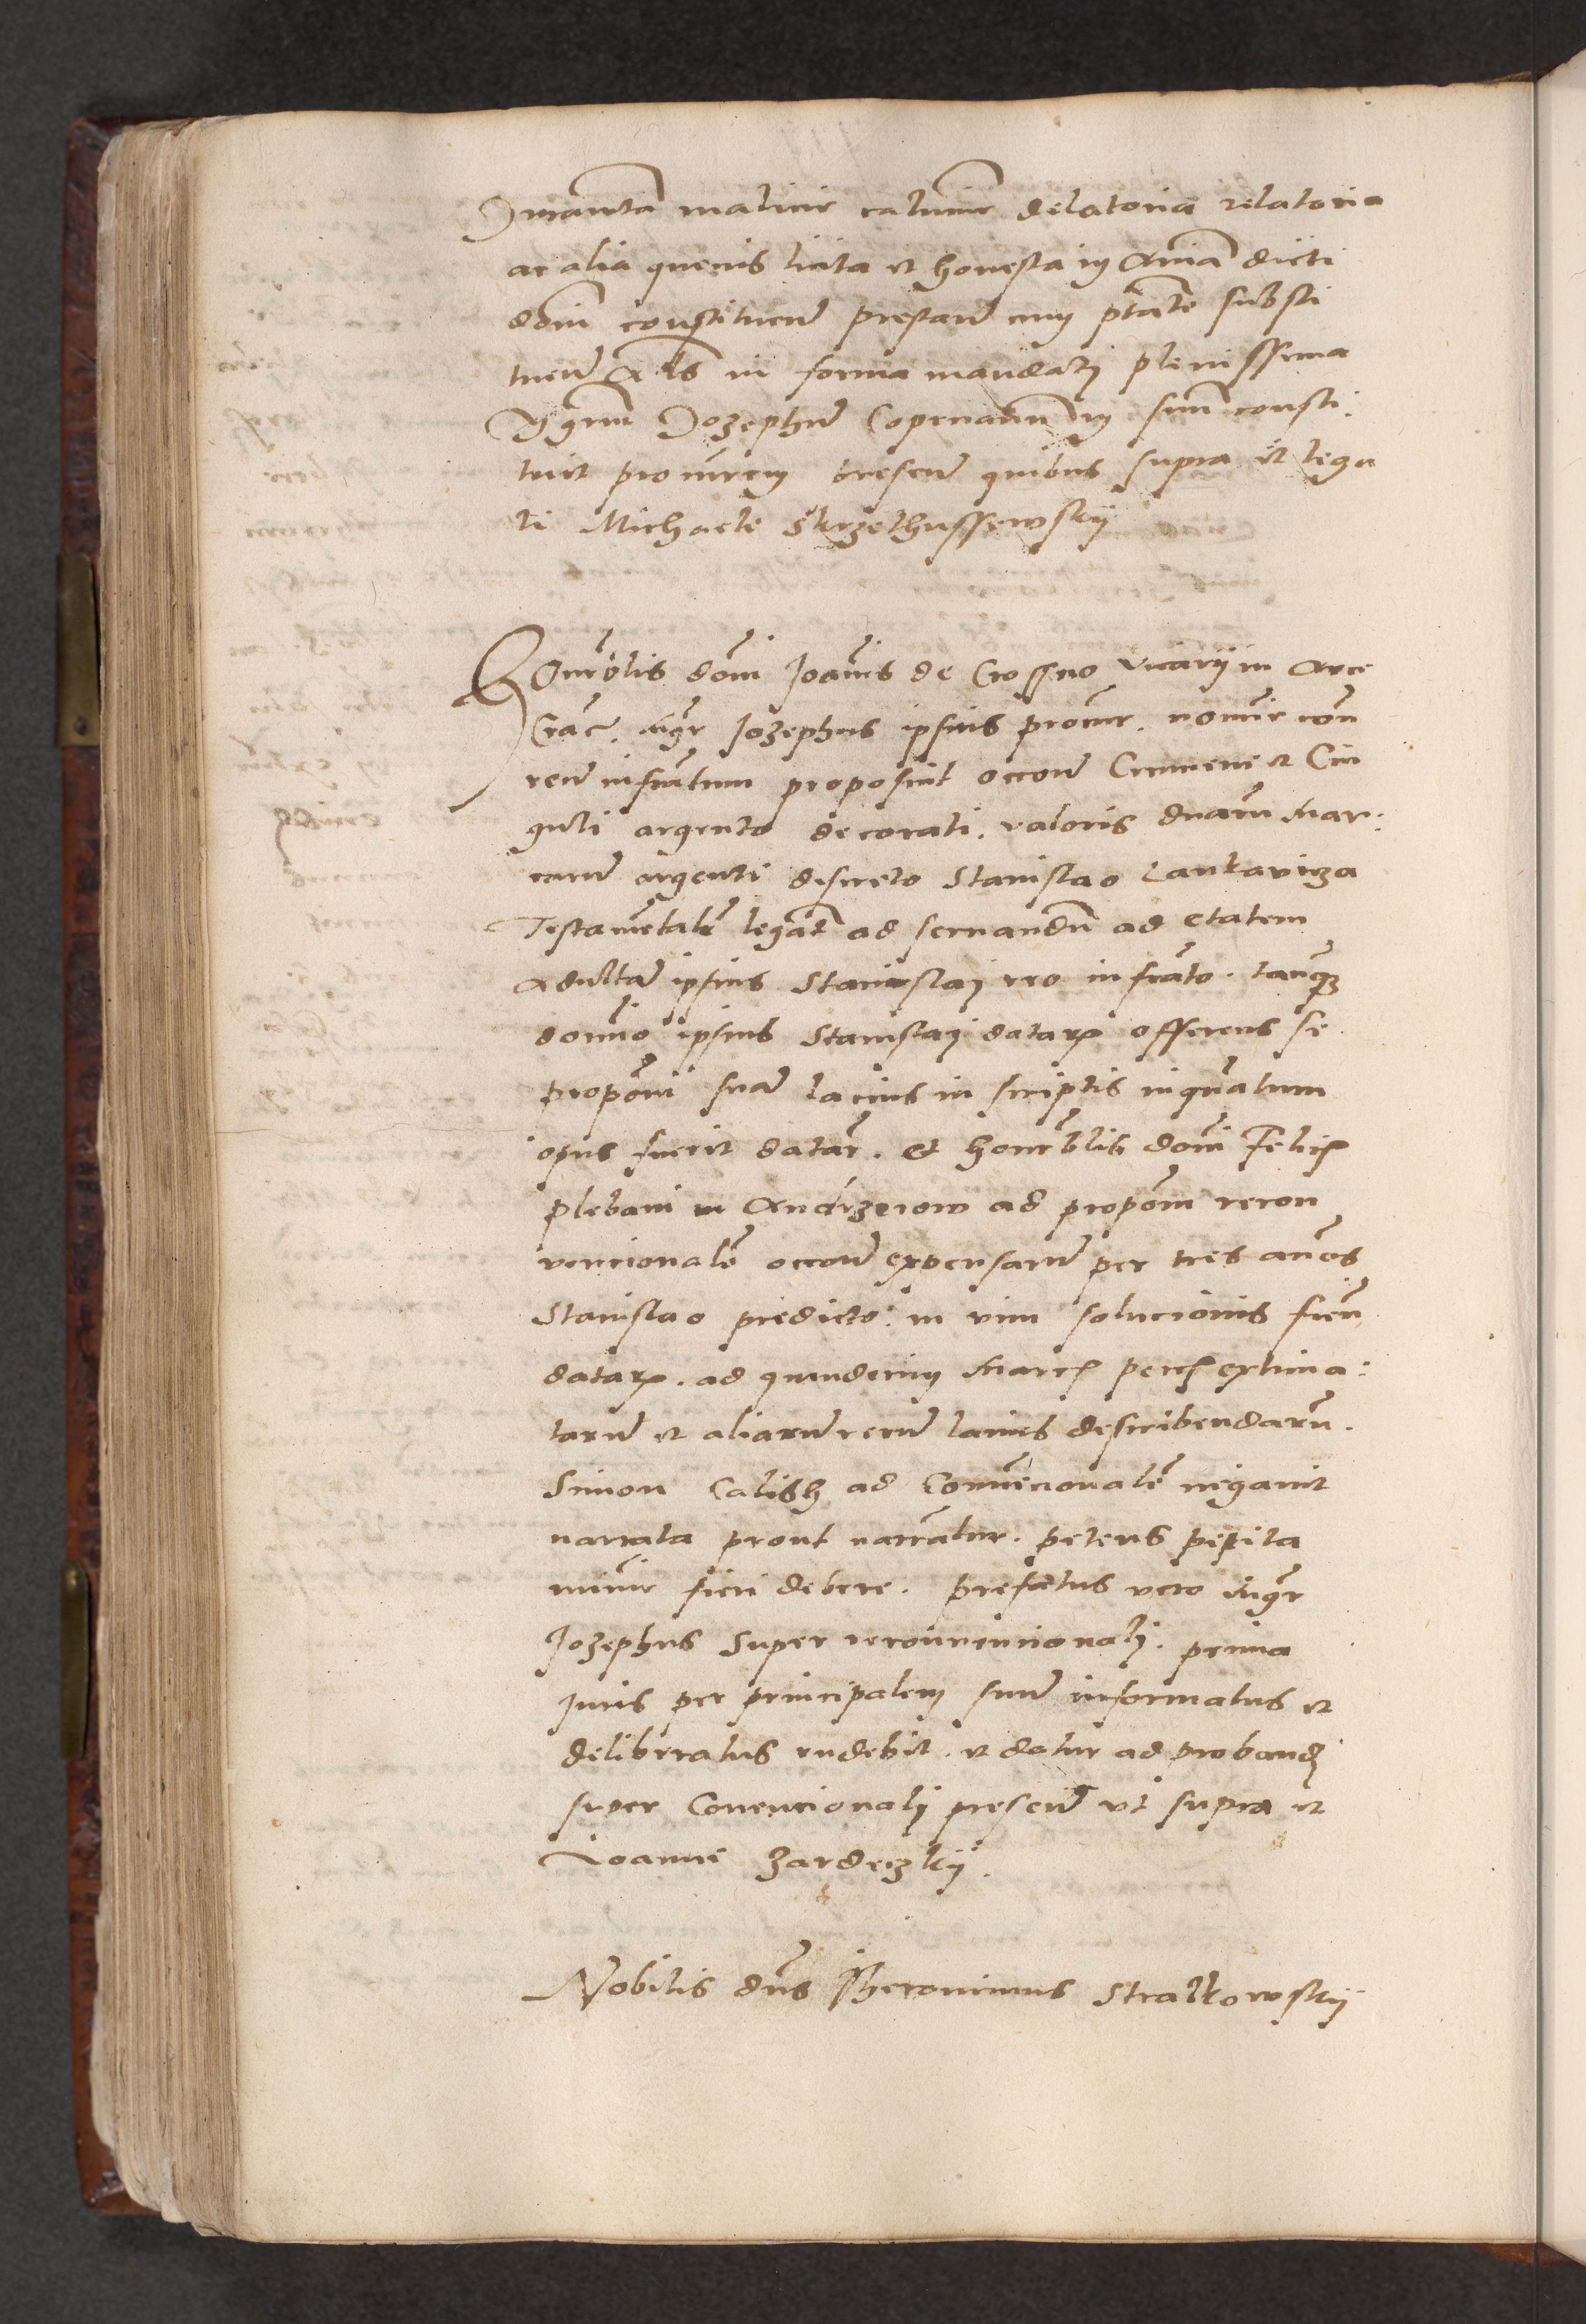 Juramta malicie calumnie delatoria relatoria
ac alia quevis licita et honesta in aniam dicti
dom constituen prestand cum ptate substi
tuend Als in forma mandati plenissima
Mgrm Jozephum Copernaum in suum consti
tuit procurem presen quibus supra et legu
ti Michaele Skrzethussewskij

Honrblis dom Joannis de Crossno vicarij in Arce
Crac. Mgr Jozephus ipsius procur. nomine con
ren infrantum proposuit occone Crumene et Cin
guli argento decorati. valoris duarum Mar:
carum argenti discreto Stanislao Lankawcza
Testamentalr legat ad servandum ad etatem
adultam ipsius Stanislaj reo infranto. tanquam
domino ipsius Stanislaj datarum offerens se
propom suam lacius in scriptis inquantum
opus fuerit datar. Et honorblis dom Felicis
plebani in Andrzeiow ad propom recon
vencionale occone expensarum per tres annos
Stanislao predicto: in vim solucionis fien
datarum. ad quindecim Marcas pecc extima:
tarum et aliarum rerum lacius describendarum.
Simon Calish ad Convencionale negavit
narrata prout narrantur. petens petita
minime fieri debere. Prefatus vero Mgr
Jozephus super reconvencionali. prima
Juris per principalem suum informatus et
deliberatus rndebit. et datur ad proband
super Convencionali presen ut supra et
Joanne Zardeczkij.

Nobilis dns Jheronimus Stralkowskij